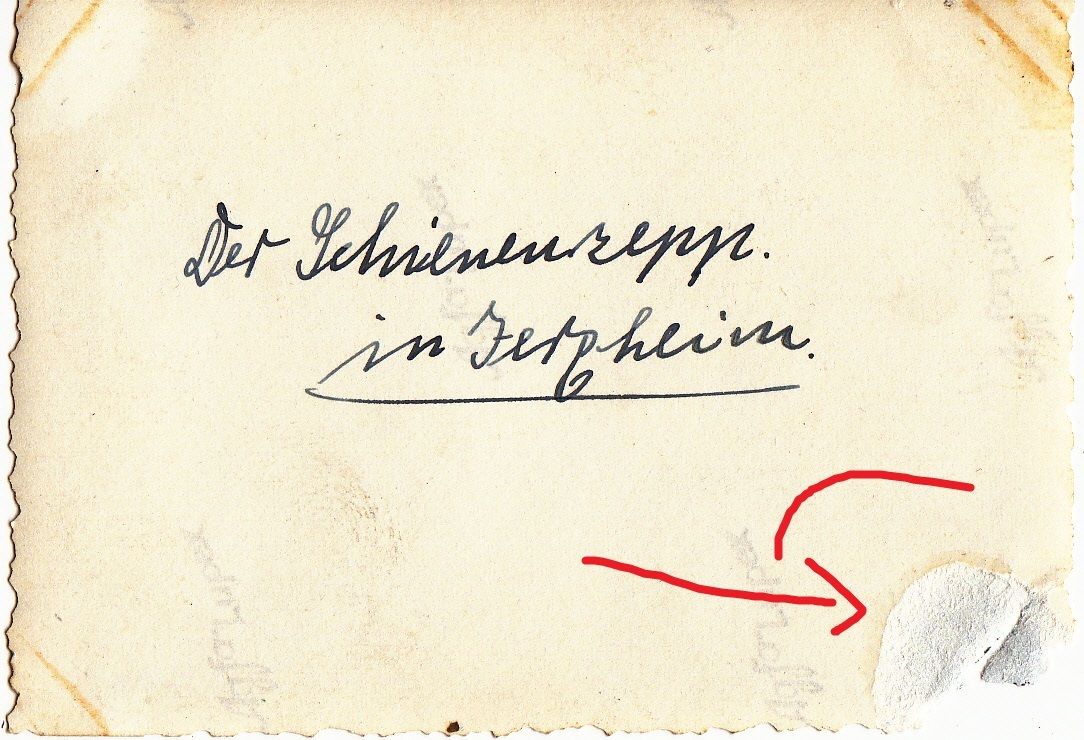 Der Schienenzepp.
in Jerxheim.